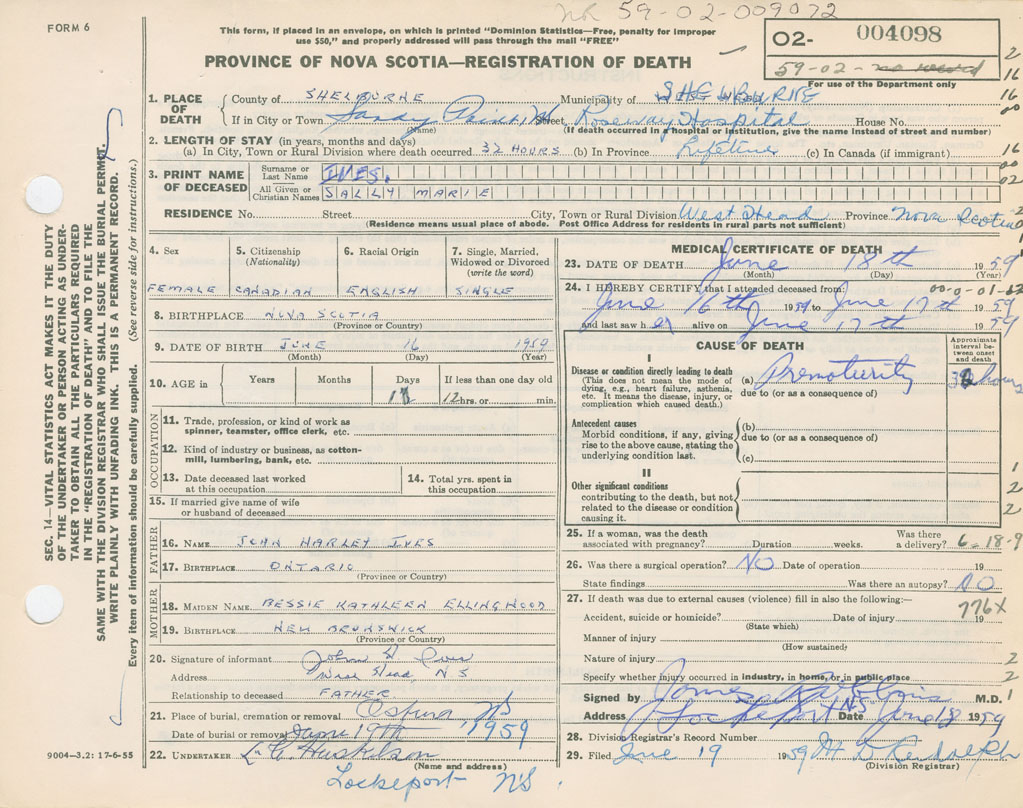 NR 59-02-009072
FORM 6
This form, if placed in an envelope, on which is printed "Dominion Statistics—Free, penalty for improper
use $50," and properly addressed will pass through the mail "FREE"
02- 004098
59-02- no record
For use of the Department only
PROVINCE OF NOVA SCOTIA—REGISTRATION OF DEATH
1. PLACE OF DEATH
County of SHELBURNE Municipality of SHELBURNE
If in City or Town Sandy Point, NS Street Roseway Hospital House No.
(Name) (If death occurred in a hospital or institution, give the name instead of street and number)
2. LENGTH OF STAY (in years, months and days)
(a) In City, Town or Rural Division where death occurred 32 HOURS (b) In Province Lifetime (c) In Canada (if immigrant)
3. PRINT NAME OF DECEASED
Surname or Last Name IVES.
All Given or Christian Names SALLY MARIE
RESIDENCE No. Street City, Town or Rural Division West Head Province Nova Scotia
(Residence means usual place of abode. Post Office Address for residents in rural parts not sufficient)
4. Sex FEMALE
5. Citizenship (Nationality) CANADIAN
6. Racial Origin ENGLISH
7. Single, Married, Widowed or Divorced (write the word) SINGLE
8. BIRTHPLACE NOVA SCOTIA
(Province or Country)
9. DATE OF BIRTH JUNE 16 1959
(Month) (Day) (Year)
10. AGE in Years Months Days If less than one day old
12 hrs. or min.
OCCUPATION
11. Trade, profession, or kind of work as
spinner, teamster, office clerk, etc.
12. Kind of industry or business, as cotton-
mill, lumbering, bank, etc.
13. Date deceased last worked
at this occupation
14. Total yrs. spent in
this occupation
15. If married give name of wife
or husband of deceased
FATHER
16. NAME JOHN HARLEY IVES
17. BIRTHPLACE ONTARIO
(Province or Country)
MOTHER
18. MAIDEN NAME BESSIE KATHLEEN ELLINGWOOD
19. BIRTHPLACE NEW BRUNSWICK
(Province or Country)
20. Signature of informant John H Ives
Address West Head, N S
Relationship to deceased FATHER
21. Place of burial, cremation or removal NS
Date of burial or removal June 19th 1959
22. UNDERTAKER
(Name and address)
Lockeport NS.
9004—3.2: 17-6-55
MEDICAL CERTIFICATE OF DEATH
23. DATE OF DEATH June 18th 1959
(Month) (Day)
24. I HEREBY CERTIFY that I attended deceased from:
June 16th 1959 to June 17th 1959
and last saw her alive on June 17th 1959
CAUSE OF DEATH
Approximate interval between onset and death
I
Disease or condition directly leading to death
(This does not mean the mode of
dying, e.g., heart failure, asthenia,
etc. It means the disease, injury, or
complication which caused death.)
(a) Prematurity 32 hours
due to (or as a consequence of)
Antecedent causes
Morbid conditions, if any, giving
rise to the above cause, stating the
underlying condition last.
(b)
due to (or as a consequence of)
(c)
II
Other significant conditions
contributing to the death, but not
related to the disease or condition
causing it.
25. If a woman, was the death
associated with pregnancy? Duration weeks. Was there
a delivery? 6-18-9
26. Was there a surgical operation? NO Date of operation 19
State findings Was there an autopsy? NO
27. If death was due to external causes (violence) fill in also the following:—
776X
Accident, suicide or homicide? Date of injury 19
(State which)
Manner of injury
(How sustained)
Nature of injury
Specify whether injury occurred in industry, in home, or in public place
Signed by M.D.
Address Lockeport NS Date June 18 1959
28. Division Registrar's Record Number
29. Filed June 19 1959
(Division Registrar)
SEC. 14—VITAL STATISTICS ACT MAKES IT THE DUTY
OF THE UNDERTAKER OR PERSON ACTING AS UNDER-
TAKER TO OBTAIN ALL THE PARTICULARS REQUIRED
IN THE "REGISTRATION OF DEATH" AND TO FILE THE
SAME WITH THE DIVISION REGISTRAR WHO SHALL ISSUE THE BURIAL PERMIT.
WRITE PLAINLY WITH UNFADING INK. THIS IS A PERMANENT RECORD.
Every item of information should be carefully supplied. (See reverse side for instructions.)